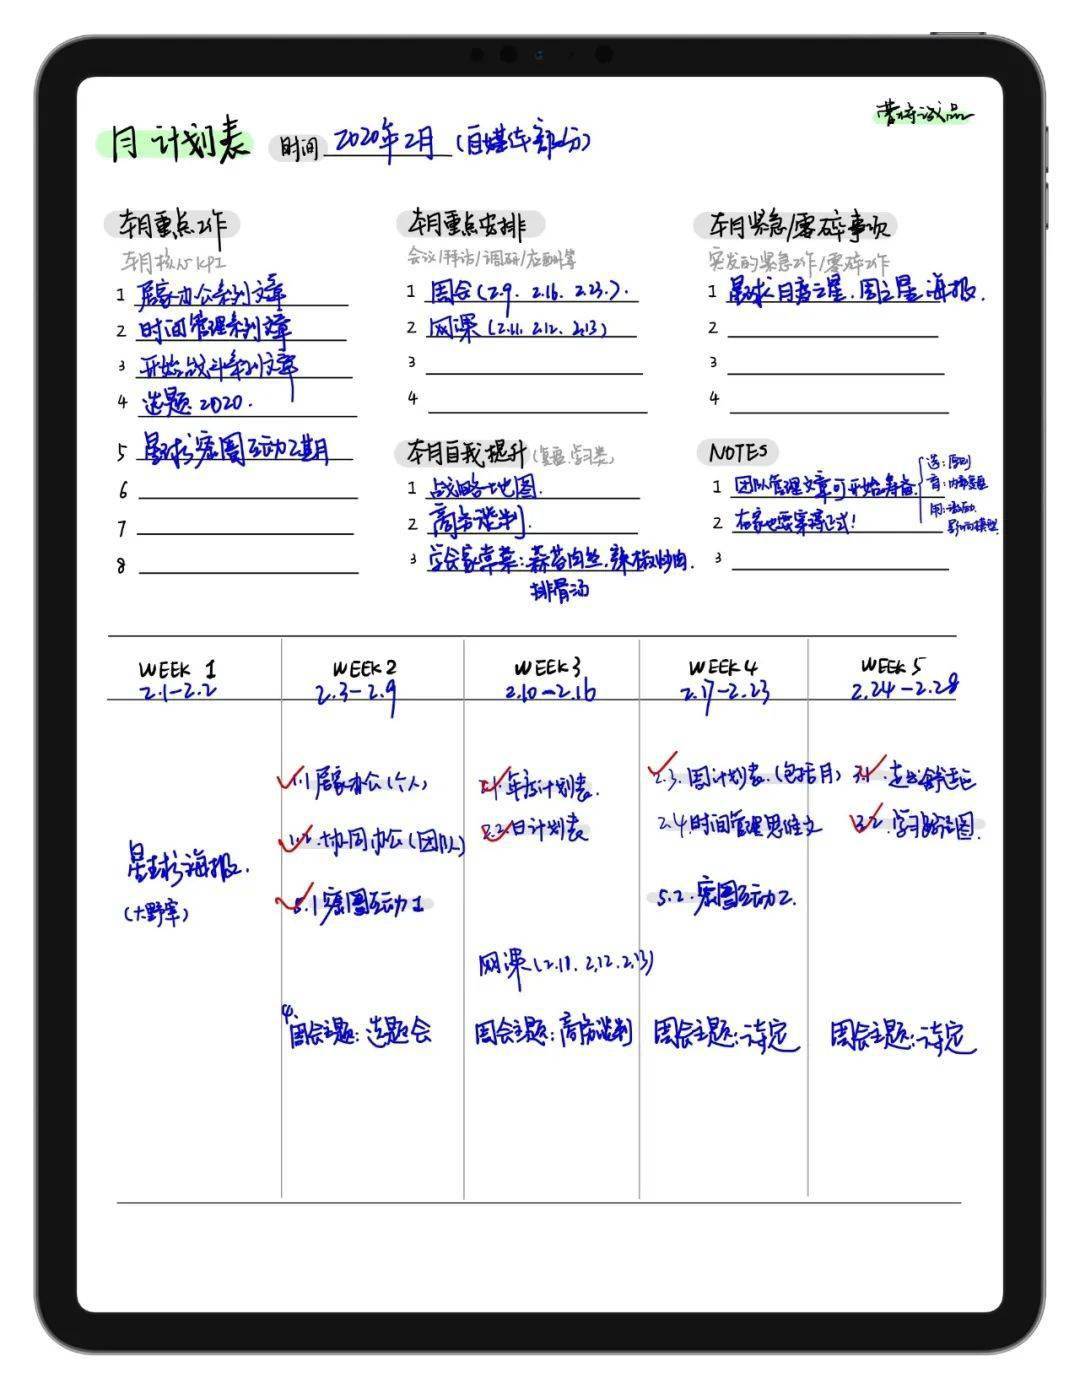 月计划表 时间 2020年2月(自媒体部分)
本月重点工作
本月核心KPI
1 居家办公系列文章
2 时间管理系列文章
3 开始战斗系列文章
4 选题 2020.
5 星球密圈互动2期
6
7
8
本月重点安排
会议/拜访/调研/应酬等
1 周会(2.9. 2.16. 2.23.).
2 网课(2.11. 2.12. 2.13)
3
4
本月自我提升(复盘.学习类)
1 战略地图.
2 商务谈判.
3 学会家常菜:蒜苔肉丝.辣椒炒肉.
排骨汤
本月紧急/零碎事项
突发的紧急工作/零碎工作
1 星球月度之星.周之星海报.
2
3
4
NOTES
1 团队管理文章可开始筹备.
选:原则
育:内部复盘
用:
影响模型
2 在家也要穿得正式!
3
WEEK 1
2.1-2.2
星球海报.
WEEK 2
2.3-2.9
1.1 居家办公(个人)
1.2.协同办公(团队)
5.1 密圈互动1
4.
周会主题:选题会
WEEK 3
2.10-2.16
2.1.年度计划表.
2.2.日计划表
网课(2.11. 2.12. 2.13)
周会主题:商务谈判
WEEK 4
2.17-2.23
2.3.周计划表.(包括月)
2.4.时间管理思维文
5.2.密圈互动2.
周会主题:待定
WEEK 5
2.24-2.28
3.1.走出舒适区
3.2.学习路径图.
周会主题:待定